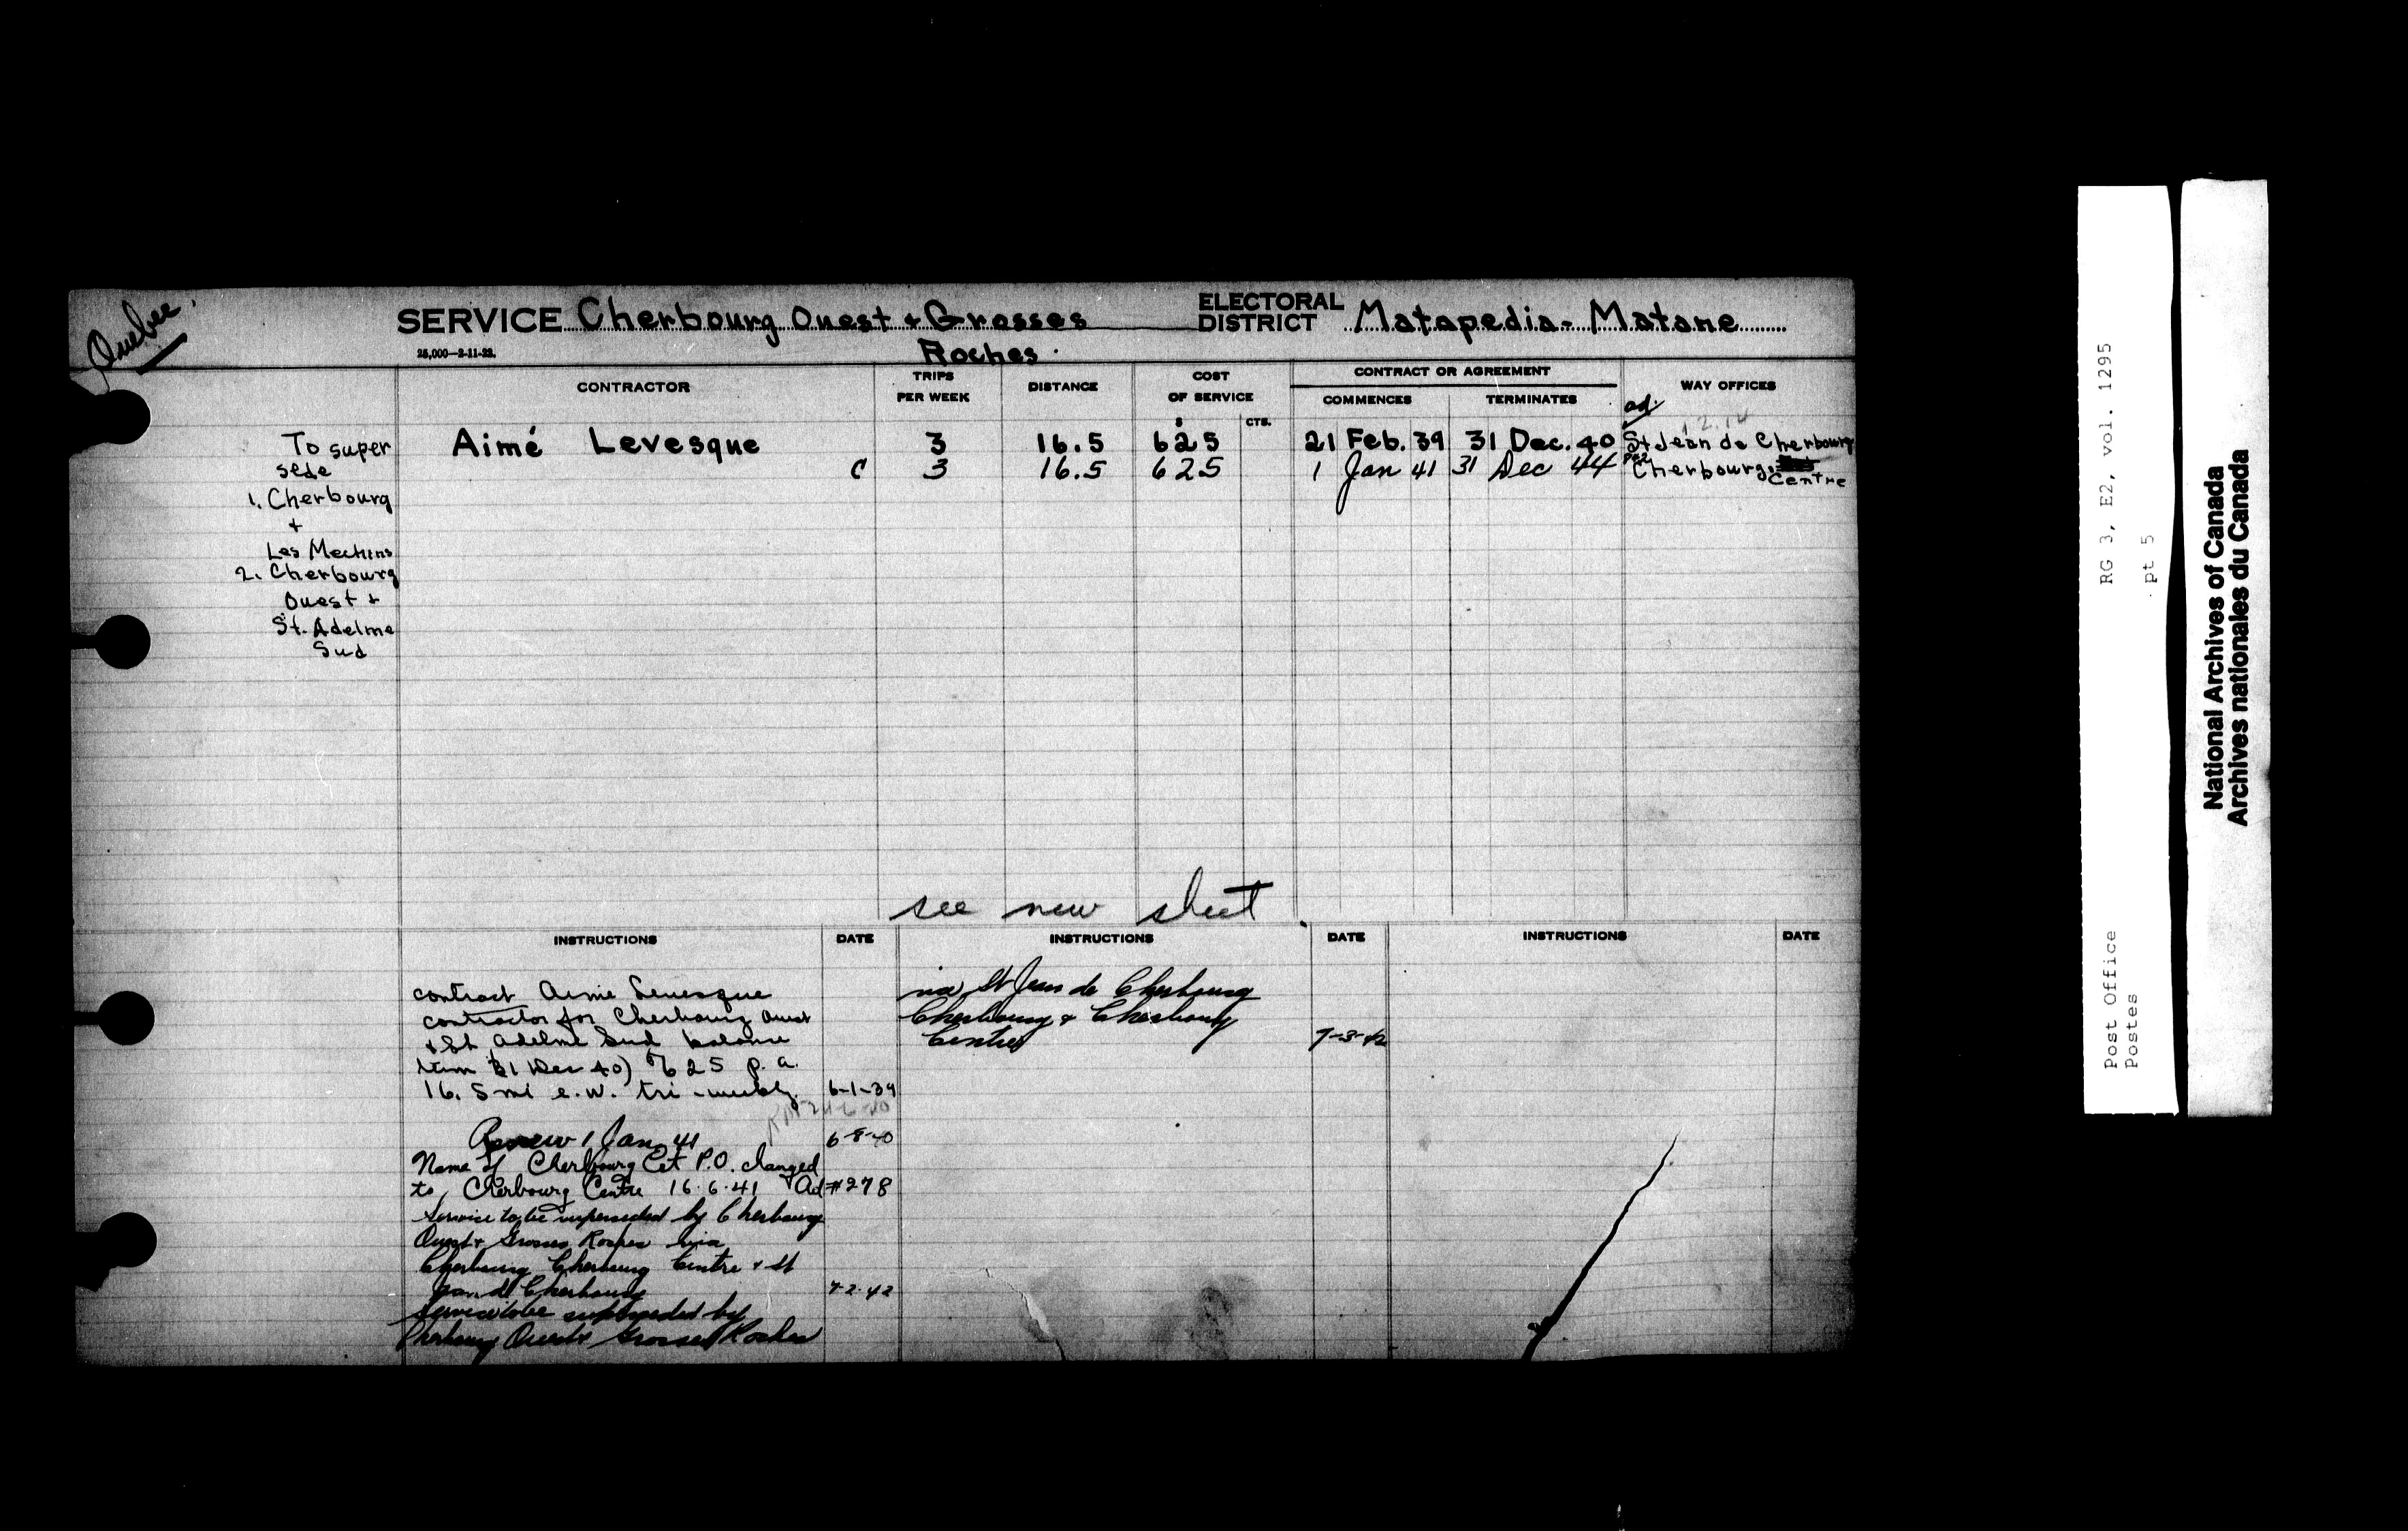 Quebec.
SERVICE Cherbourg Ouest + Grosses
Roches.
ELECTORAL
DISTRICT Matapedia-Matane
25,000—2-11-22.
CONTRACTOR
TRIPS
PER WEEK
DISTANCE
COST
OF SERVICE
$ CTS.
CONTRACT OR AGREEMENT
COMMENCES TERMINATES
WAY OFFICES
ad.
Aimé Levesque 3 16.5 625 21 Feb. 39 31 Dec. 40 St Jean de Cherbourg
C 3 16.5 625 1 Jan 41 31 Dec 44 Cherbourg Centre
To super
sede
1. Cherbourg
+
Les Mechins
2. Cherbourg
Ouest +
St. Adelme
Sud
see new sheet
INSTRUCTIONS DATE INSTRUCTIONS DATE INSTRUCTIONS DATE
contract Aime Levesque
contractor for Cherbourg Ouest
+ St Adelme Sud balance
term 31 Dec 40) $625 p.a.
16.5 mi e.w. tri-weekly. 6-1-39
Renew 1 Jan 41 6-8-40
Name of Cherbourg Est P.O. changed
to Cherbourg Centre 16.6.41 Ad #278
Service to be superseded by Cherbourg
Ouest + Grosses Roches via
Cherbourg Cherbourg Centre + St
Jean de Cherbourg 7-2-42
Service to be superseded by
Cherbourg Ouest + Grosses Roches
via St Jean de Cherbourg
Cherbourg + Cherbourg
Centre 7-3-42
Post Office RG 3, E2, vol. 1295
Postes pt 5
National Archives of Canada
Archives nationales du Canada